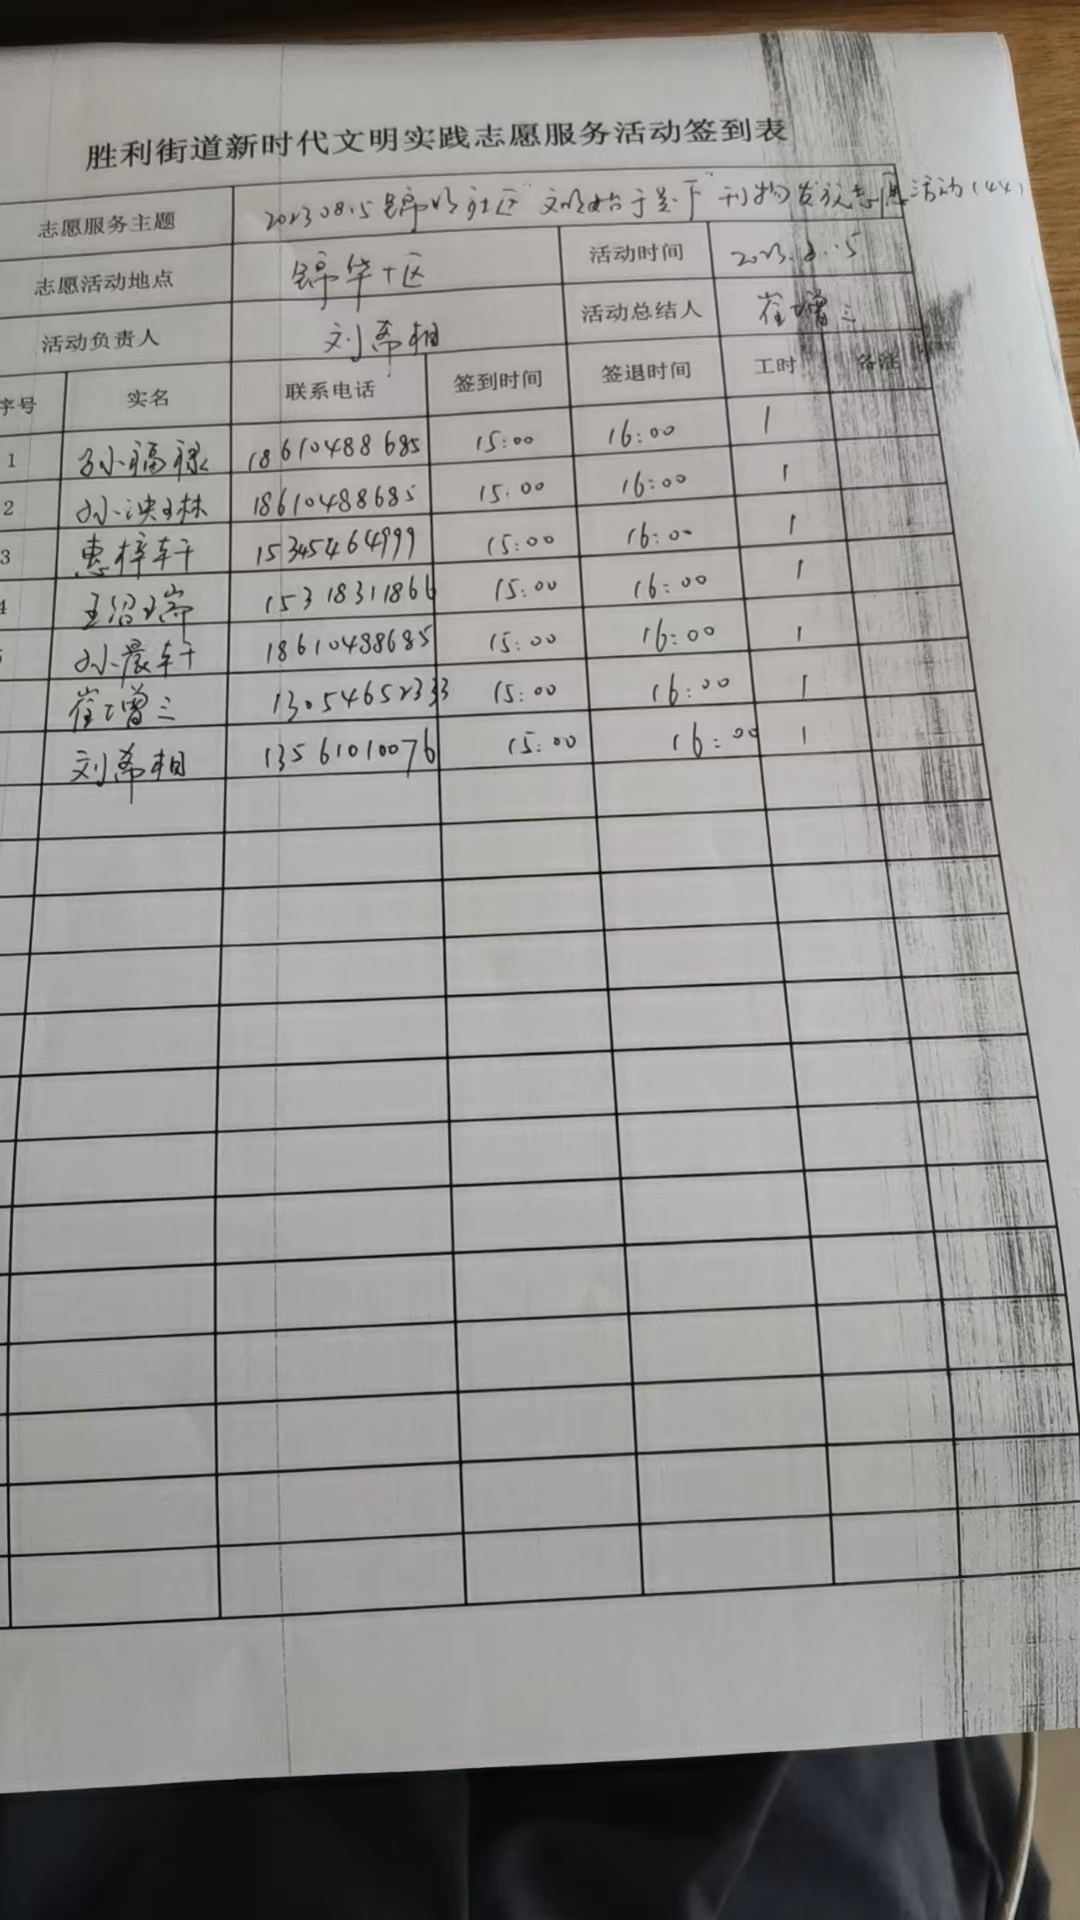 胜利街道新时代文明实践志愿服务活动签到表
志愿服务主题 2023.08.5 锦华社区"文明始于足下"刊物发放志愿活动(44)
志愿活动地点 锦华十区 活动时间 2023.8.5
活动负责人 刘希相 活动总结人 崔增三
序号 实名 联系电话 签到时间 签退时间 工时 备注
1 孙福禄 18610488685 15:00 16:00 1
2 孙泱林 18610488685 15:00 16:00 1
3 惠梓轩 15345464999 15:00 16:00 1
4 王沼瑞 15318311866 15:00 16:00 1
孙晨轩 18610488685 15:00 16:00 1
崔增三 13054652333 15:00 16:00 1
刘希相 13561010076 15:00 16:00 1